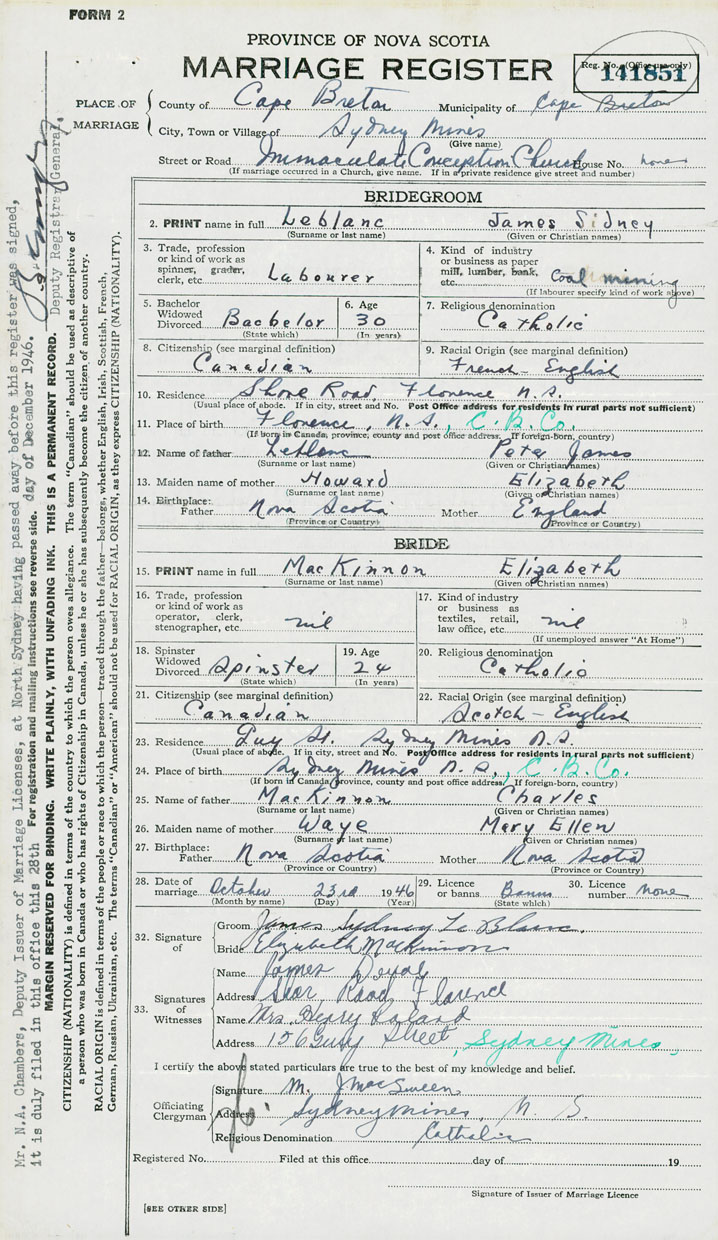 FORM 2
PROVINCE OF NOVA SCOTIA
MARRIAGE REGISTER
Reg. No. (Office use only)
141851
PLACE OF MARRIAGE
County of Cape Breton Municipality of Cape Breton
City, Town or Village of Sydney Mines
(Give name)
Street or Road Immaculate Conception Church House No. none
(If marriage occurred in a Church, give name. If in a private residence give street and number)
BRIDEGROOM
2. PRINT name in full Leblanc James Sidney
(Surname or last name) (Given or Christian names)
3. Trade, profession or kind of work as spinner, grader, clerk, etc. Labourer
4. Kind of industry or business as paper mill, lumber, bank, etc. Coal mining
(If labourer specify kind of work above)
5. Bachelor Widowed Divorced Bachelor
(State which)
6. Age 30
(In years)
7. Religious denomination Catholic
8. Citizenship (see marginal definition) Canadian
9. Racial Origin (see marginal definition) French-English
10. Residence Shore Road, Florence N.S.
(Usual place of abode. If in city, street and No. Post Office address for residents in rural parts not sufficient)
11. Place of birth Florence, N.S., C.B.Co.
(If born in Canada, province, county and post office address. If foreign-born, country)
12. Name of father Leblanc Peter James
(Surname or last name) (Given or Christian names)
13. Maiden name of mother Howard Elizabeth
(Surname or last name) (Given or Christian names)
14. Birthplace: Father Nova Scotia Mother England
(Province or Country) (Province or Country)
BRIDE
15. PRINT name in full MacKinnon Elizabeth
(Surname or last name) (Given or Christian names)
16. Trade, profession or kind of work as operator, clerk, stenographer, etc. nil
17. Kind of industry or business as textiles, retail, law office, etc. nil
(If unemployed answer "At Home")
18. Spinster Widowed Divorced Spinster
(State which)
19. Age 24
(In years)
20. Religious denomination Catholic
21. Citizenship (see marginal definition) Canadian
22. Racial Origin (see marginal definition) Scotch-English
23. Residence St. Sydney Mines N.S.
(Usual place of abode. If in city, street and No. Post Office address for residents in rural parts not sufficient)
24. Place of birth Sydney Mines N.S., C.B.Co.
(If born in Canada province, county and post office address. If foreign-born, country)
25. Name of father MacKinnon Charles
(Surname or last name) (Given or Christian names)
26. Maiden name of mother Waye Mary Ellen
(Surname or last name) (Given or Christian names)
27. Birthplace: Father Nova Scotia Mother Nova Scotia
(Province or Country) (Province or Country)
28. Date of marriage October 23rd 1946
(Month by name) (Day) (Year)
29. Licence or banns Banns
(State which)
30. Licence number none
32. Signature of
Groom James Sydney Le Blanc.
Bride Elizabeth MacKinnon
33. Signatures of Witnesses
Name James
Address Road, Florence
Name Mrs. Henry
Address 156 Street, Sydney Mines,
I certify the above stated particulars are true to the best of my knowledge and belief.
Officiating Clergyman
Signature M. MacSween
Address Sydney Mines, N. S.
Religious Denomination Catholic
Registered No. Filed at this office day of 19
Signature of Issuer of Marriage Licence
[SEE OTHER SIDE]
Mr. N.A. Chambers, Deputy Issuer of Marriage Licenses, at North Sydney having passed away before this register was signed,
it is duly filed in this office this 28th day of December 1946.
Deputy Registrar General.
For registration and mailing instructions see reverse side.
MARGIN RESERVED FOR BINDING. WRITE PLAINLY, WITH UNFADING INK. THIS IS A PERMANENT RECORD.
CITIZENSHIP (NATIONALITY) is defined in terms of the country to which the person owes allegiance. The term "Canadian" should be used as descriptive of
a person who was born in Canada or who has rights of Citizenship in Canada, unless he or she has subsequently become the citizen of another country.
RACIAL ORIGIN is defined in terms of the people or race to which the person—traced through the father—belongs, whether English, Irish, Scottish, French,
German, Russian, Ukrainian, etc. The terms "Canadian" or "American" should not be used for RACIAL ORIGIN, as they express CITIZENSHIP (NATIONALITY).